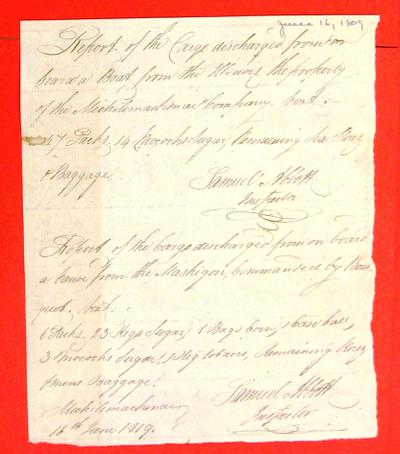 June 16, 1809
Report of the Cargo discharged from on
board a Boat from the Illinois the property
of the Michilimackinac Company, Viz.t :
47 Packs, 14 Mococks Sugar, Remaining Sea Stores
& Baggage.
Samuel Abbott
Inspector
Report of the Cargo discharged from on board
a Canoe from the Maskigon, Commanded by Bous
quet, Viz.t :
6 Packs, 23 Kegs Sugar, 1 Bags Corn, 1 Case
3 Mococks Sugar, 1 Keg tobacco, Remaining Stores
& mens Baggage.
Michilimackinac
16th June 1809.
Samuel Abbott
Inspector